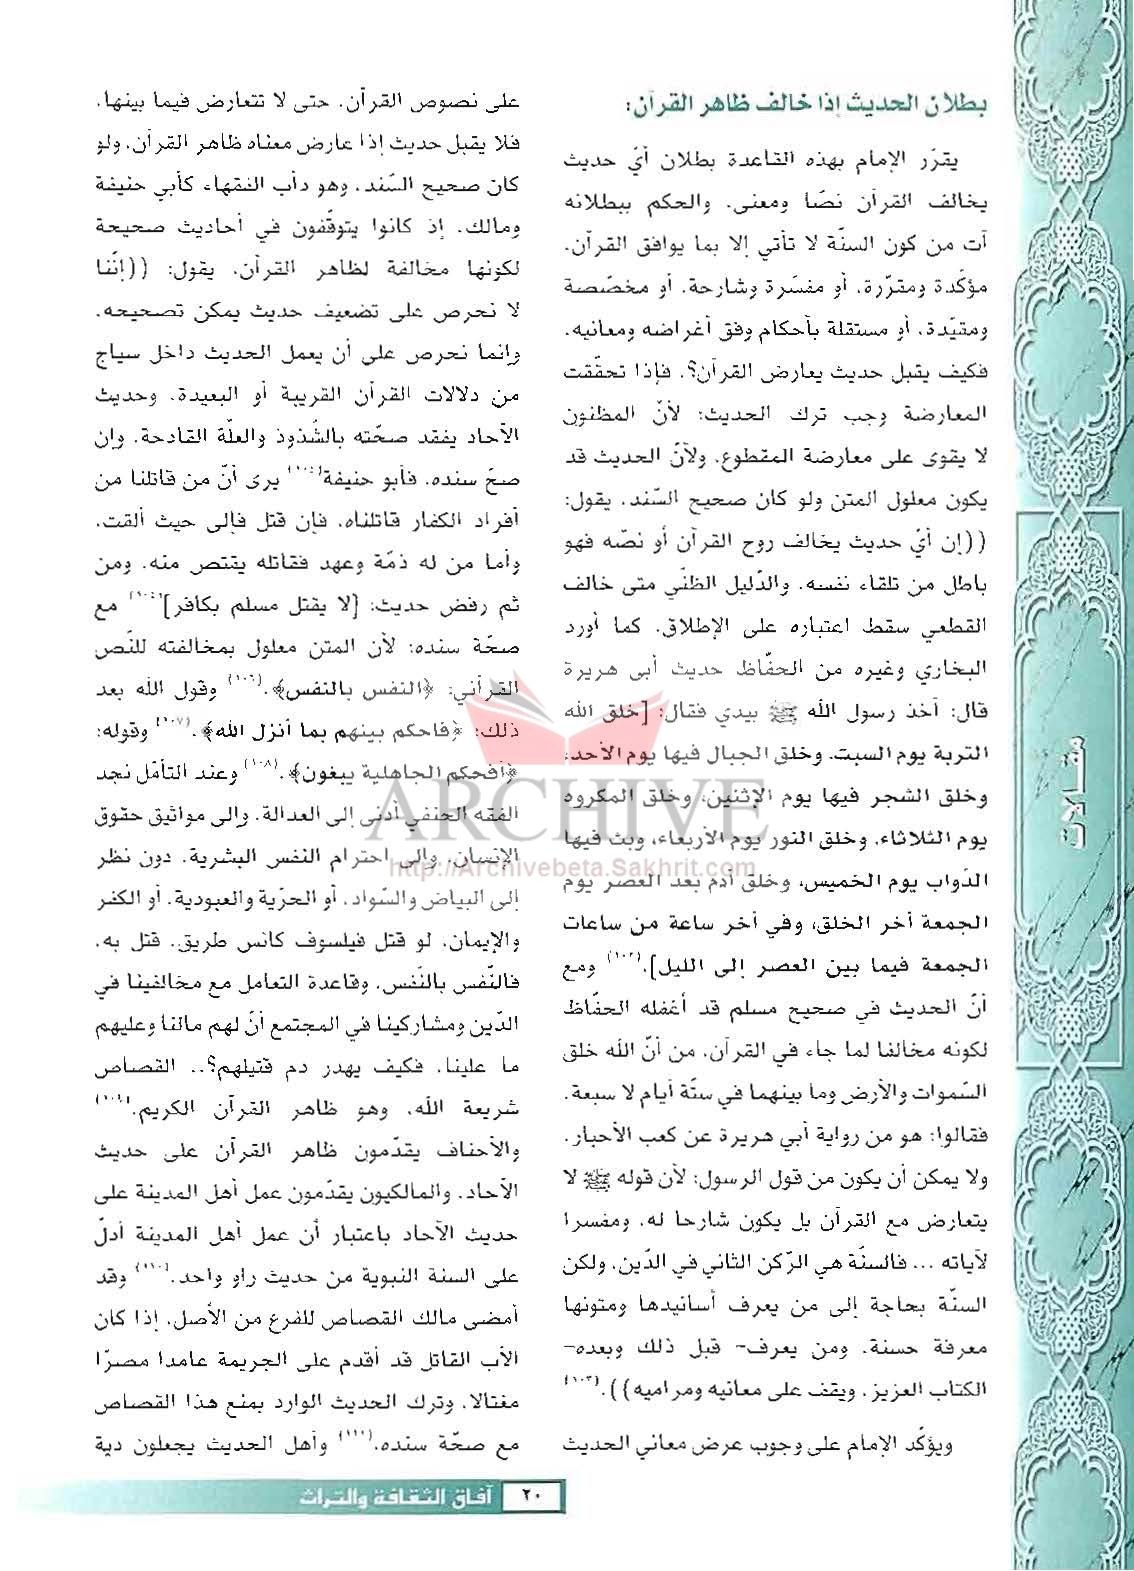 بطلان الحديث إذا خالف ظاهر القرآن:
يقرّر الإمام بهذه القاعدة بطلان أيّ حديث
يخالف القرآن نصّا ومعنى. والحكم ببطلانه
آت من كون السنّة لا تأتي إلا بما يوافق القرآن.
مؤكّدة ومقرّرة، أو مفسّرة وشارحة، أو مخصّصة
ومقيّدة، أو مستقلة بأحكام وفق أغراضه ومعانيه.
فكيف يقبل حديث يعارض القرآن؟. فإذا تحقّقت
المعارضة وجب ترك الحديث؛ لأنّ المظنون
لا يقوى على معارضة المقطوع. ولأنّ الحديث قد
يكون معلول المتن ولو كان صحيح السّند. يقول:
((إن أيّ حديث يخالف روح القرآن أو نصّه فهو
باطل من تلقاء نفسه. والدّليل الظنّي متى خالف
القطعي سقط اعتباره على الإطلاق. كما أورد
البخاري وغيره من الحفّاظ حديث أبي هريرة
قال: أخذ رسول الله ﷺ بيدي فقال: [خلق الله
التربة يوم السبت. وخلق الجبال فيها يوم الأحد،
وخلق الشجر فيها يوم الإثنين، وخلق المكروه
يوم الثلاثاء. وخلق النور يوم الأربعاء، وبث فيها
الدّواب يوم الخميس، وخلق آدم بعد العصر يوم
الجمعة آخر الخلق، وفي آخر ساعة من ساعات
الجمعة فيما بين العصر إلى الليل].(١٠٢) ومع
أنّ الحديث في صحيح مسلم قد أغفله الحفّاظ
لكونه مخالفا لما جاء في القرآن. من أنّ الله خلق
السّموات والأرض وما بينهما في ستّة أيام لا سبعة.
فقالوا: هو من رواية أبي هريرة عن كعب الأحبار.
ولا يمكن أن يكون من قول الرسول؛ لأن قوله ﷺ لا
يتعارض مع القرآن بل يكون شارحا له. ومفسرا
لآياته ... فالسنّة هي الرّكن الثاني في الدّين. ولكن
السنّة بحاجة إلى من يعرف أسانيدها ومتونها
معرفة حسنة. ومن يعرف- قبل ذلك وبعده-
الكتاب العزيز. ويقف على معانيه ومراميه)).(١٠٣)
ويؤكّد الإمام على وجوب عرض معاني الحديث
على نصوص القرآن. حتى لا تتعارض فيما بينها.
فلا يقبل حديث إذا عارض معناه ظاهر القرآن. ولو
كان صحيح السّند. وهو دأب الفقهاء كأبي حنيفة
ومالك. إذ كانوا يتوقّفون في أحاديث صحيحة
لكونها مخالفة لظاهر القرآن. يقول: ((إنّنا
لا نحرص على تضعيف حديث يمكن تصحيحه.
وإنما نحرص على أن يعمل الحديث داخل سياج
من دلالات القرآن القريبة أو البعيدة. وحديث
الآحاد يفقد صحّته بالشّذوذ والعلّة القادحة. وإن
صحّ سنده. فأبو حنيفة(١٠٤) يرى أنّ من قاتلنا من
أفراد الكفار قاتلناه. فإن قتل فإلى حيث ألقت.
وأما من له ذمّة وعهد فقاتله يقتص منه. ومن
ثم رفض حديث: [لا يقتل مسلم بكافر](١٠٥) مع
صحّة سنده؛ لأن المتن معلول بمخالفته للنّص
القرآني: ﴿النفس بالنفس﴾.(١٠٦) وقول الله بعد
ذلك: ﴿فاحكم بينهم بما أنزل الله﴾.(١٠٧) وقوله:
﴿أفحكم الجاهلية يبغون﴾.(١٠٨) وعند التأمّل نجد
الفقه الحنفي أدنى إلى العدالة. وإلى مواثيق حقوق
الإنسان. وإلى احترام النفس البشرية. دون نظر
إلى البياض والسّواد. أو الحرّية والعبودية. أو الكفر
والإيمان. لو قتل فيلسوف كانس طريق. قتل به.
فالنّفس بالنّفس. وقاعدة التعامل مع مخالفينا في
الدّين ومشاركينا في المجتمع أنّ لهم مالنا وعليهم
ما علينا. فكيف يهدر دم قتيلهم؟.. القصاص
شريعة الله. وهو ظاهر القرآن الكريم.(١٠٩)
والأحناف يقدّمون ظاهر القرآن على حديث
الآحاد. والمالكيون يقدّمون عمل أهل المدينة على
حديث الآحاد باعتبار أن عمل أهل المدينة أدلّ
على السنة النبوية من حديث راو واحد.(١١٠) وقد
أمضى مالك القصاص للفرع من الأصل. إذا كان
الأب القاتل قد أقدم على الجريمة عامدا مصرّا
مغتالا. وترك الحديث الوارد بمنع هذا القصاص
مع صحّة سنده.(١١١) وأهل الحديث يجعلون دية
مقالات
ARCHIVE
http://Archivebeta.Sakhrit.com
٢٠ آفاق الثقافة والتراث